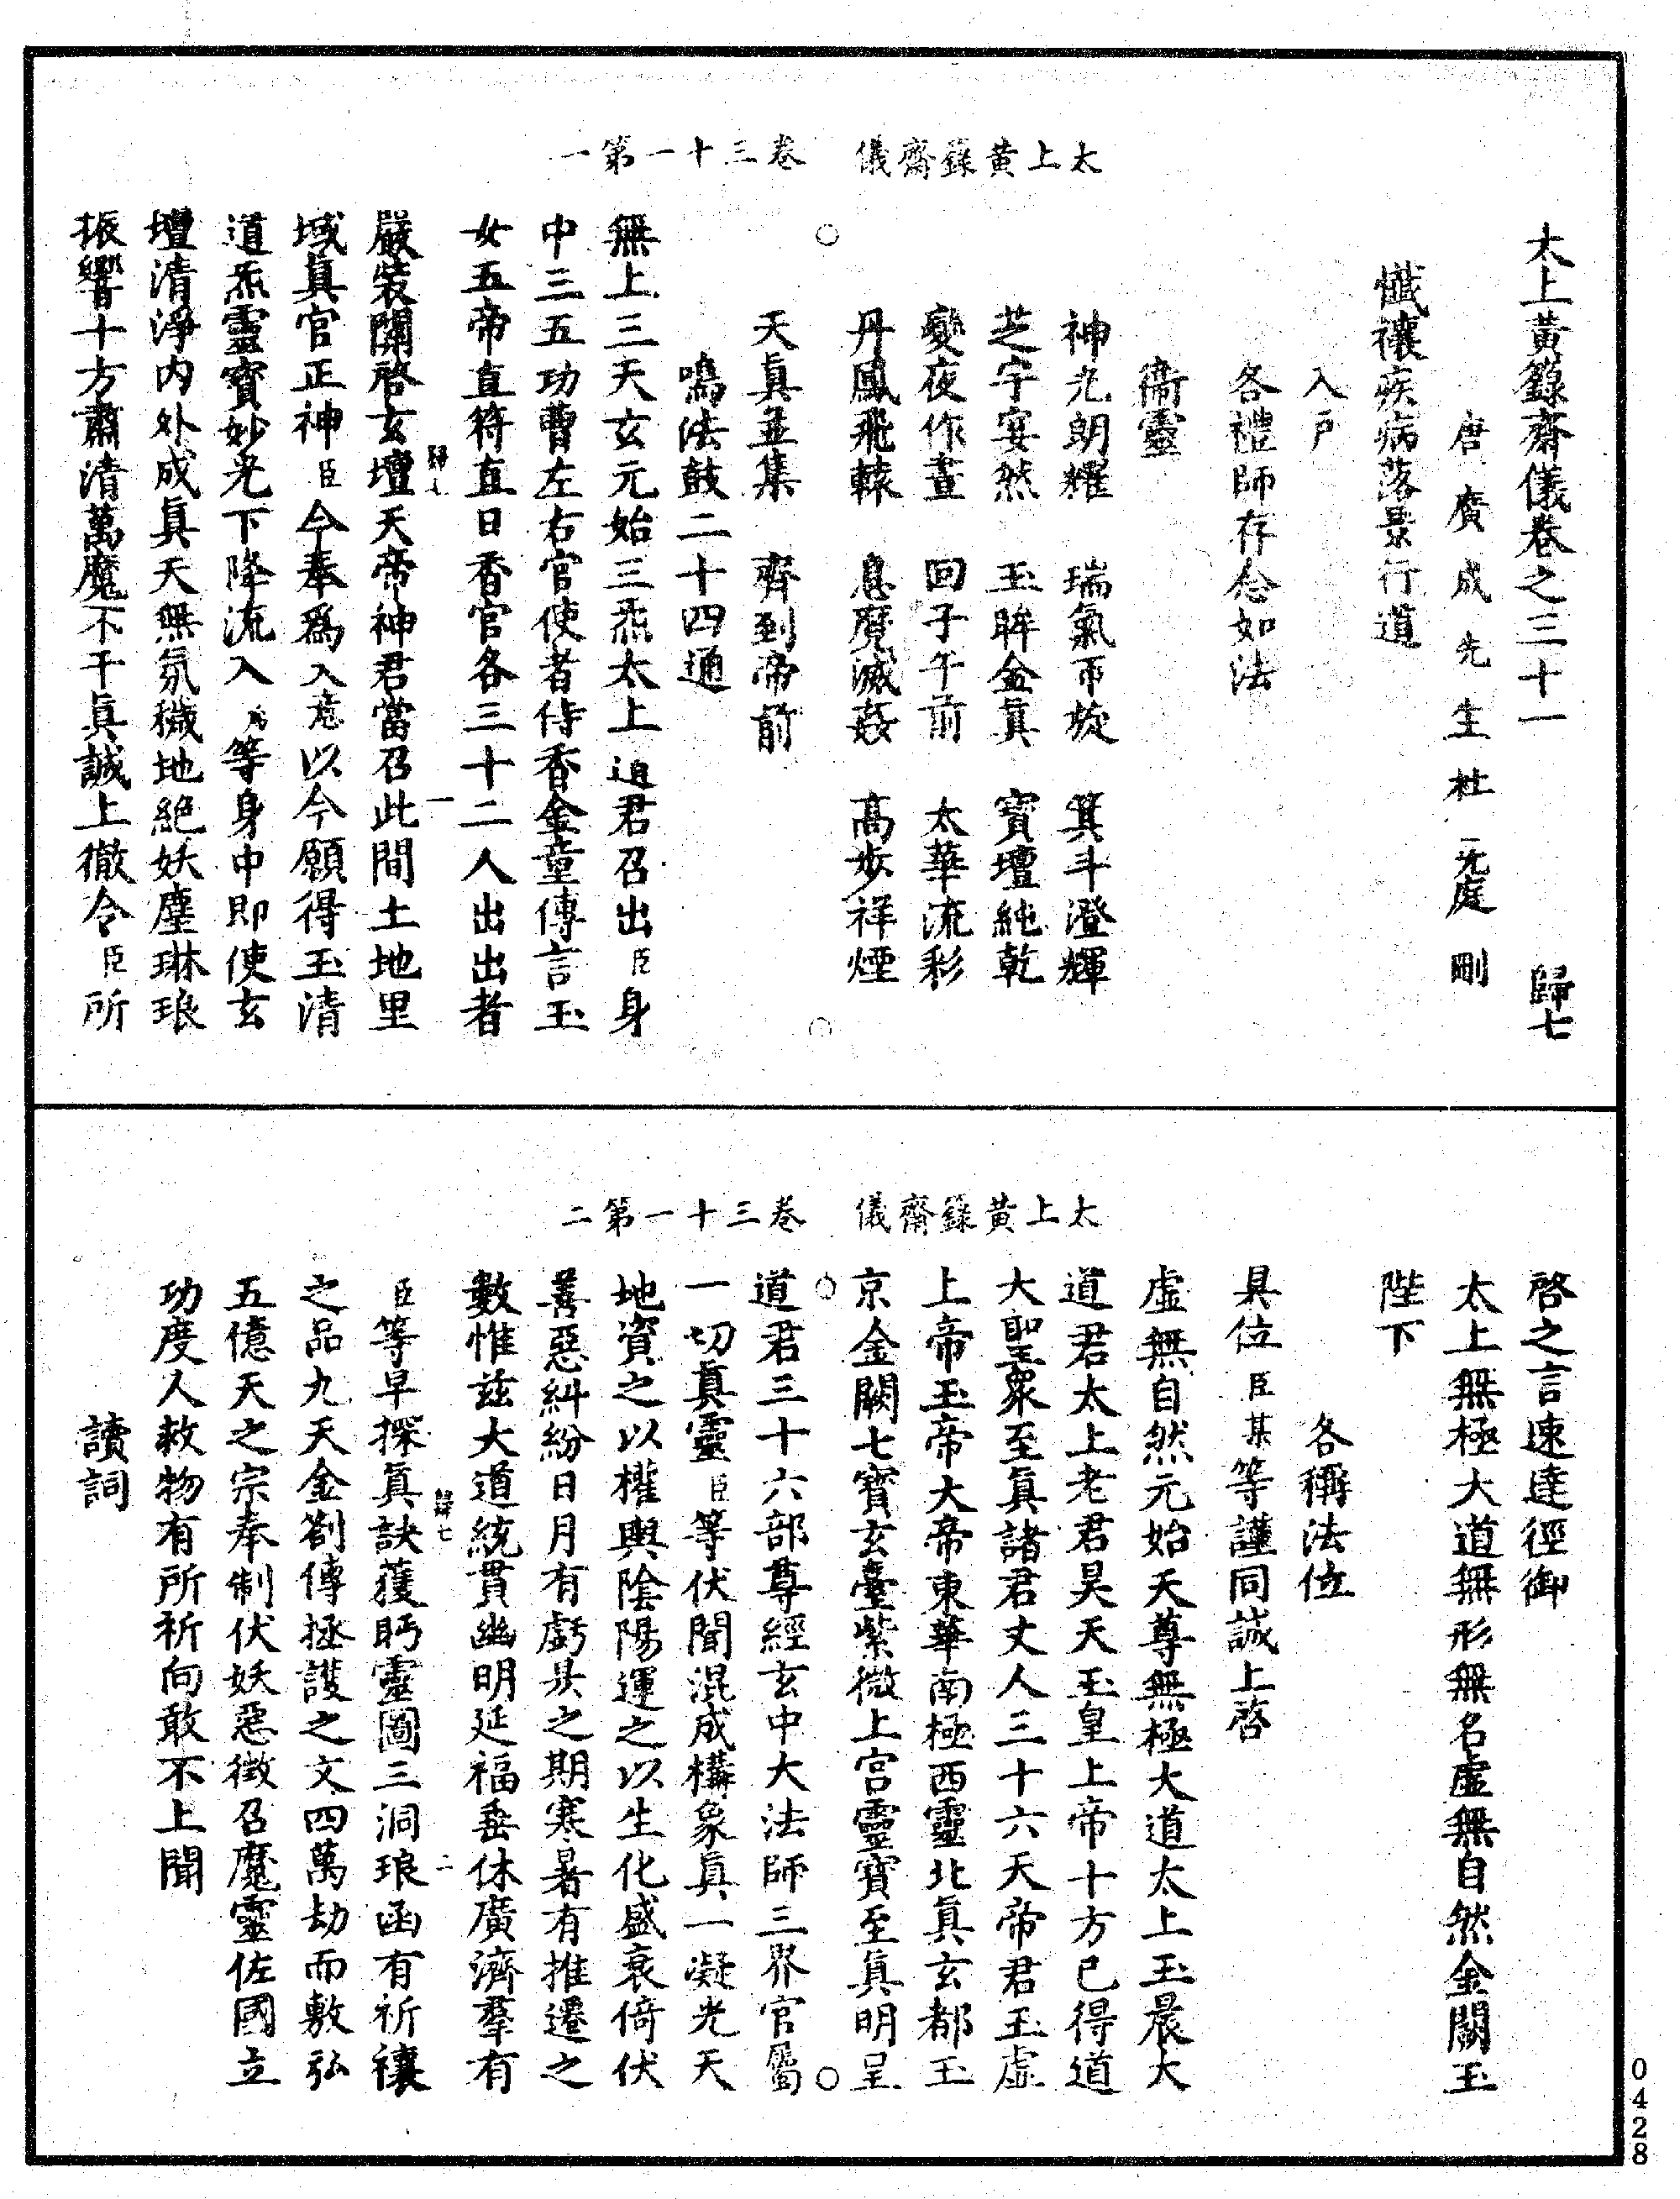 太上黃籙齋儀　卷三十一第一
太上黃籙齋儀卷之三十一　歸七
唐廣成先生杜光庭刪
懺禳疾病落景行道
入戶
各禮師存念如法
衞靈
神光朗耀　瑞氣帀旋　箕斗澄輝
芝宇宴然　玉眸金真　寶壇純乾
變夜作晝　回子午前　太華流彩
丹鳳飛轅　息魔滅姦　高步祥煙
天眞並集　齊到帝前
鳴法鼓二十四通
無上三天玄元始三炁太上道君召出臣身
中三五功曹左右官使者侍香金童傳言玉
女五帝直符直日香官各三十二人出出者
歸七　一
嚴裝關啓玄壇天帝神君當召此間土地里
域眞官正神臣今奉爲入意以今願得玉清
道炁靈寶妙光下降流入為等身中即使玄
壇清淨內外成眞天無氛穢地絕妖塵琳琅
振響十方肅清萬魔不干眞誠上徹令臣所
太上黃籙齋儀　卷三十一第二
啓之言速達徑御
太上無極大道無形無名虛無自然金闕玉
陛下
各稱法位
具位臣某等謹同誠上啓
虛無自然元始天尊無極大道太上玉晨大
道君太上老君昊天玉皇上帝十方已得道
大聖衆至眞諸君丈人三十六天帝君玉虛
上帝玉帝大帝東華南極西靈北眞玄都玉
京金闕七寶玄臺紫微上宮靈寶至眞明皇
道君三十六部尊經玄中大法師三界官屬
一切眞靈臣等伏聞混成構象眞一凝光天
地資之以權輿陰陽運之以生化盛衰倚伏
善惡糾紛日月有虧昃之期寒暑有推遷之
數惟茲大道統貫幽明延福垂休廣濟羣有
歸七　二
臣等早探眞訣獲眄靈圖三洞琅函有祈禳
之品九天金劄傳拯護之文四萬劫而敷弘
五億天之宗奉制伏妖惡徵召魔靈佐國立
功度人救物有所祈向敢不上聞
讀詞
0428